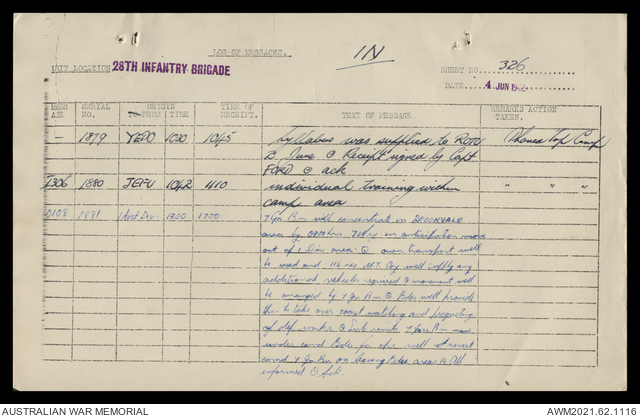 LOG OF MESSAGES.
IN
UNIT LOCATION 28TH INFANTRY BRIGADE
SHEET NO. 326
DATE 4 JUN 1942
MESSAGE SERIAL NO. ORIGIN TO FROM TIME TIME OF RECEIPT. TEXT OF MESSAGE. REMARKS ACTION TAKEN.
— 1879 YEDO 1020 1045 Syllabus was supplied to
2 June @ Receipt signed by Capt
FORD @ ack
1306 1880 JEFU 1042 1110 individual training within " " "
camp area
0108 1881 1 Aust Div. 1300 1700 Bn will concentrate in BROOKVALE
area by 0900 hrs in anticipation
out of 1 Div area @ own transport will
be used and M.T. Coy will supply any
additional vehicles required @ movement will
be arranged by Bn @ Bde will provide
to take over coast watching and picqueting
of def works @ Bn now
under comd Bde for will revert
comd Bn on leaving Bde area @ All
informed @ Ack.
AUSTRALIAN WAR MEMORIAL
AWM2021.62.1116